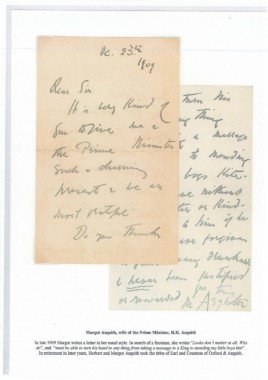 Oc. 23rd
1909
Dear Sir
It is very kind of
you to give me &
the Prime Minister
such a charming
present & we are
most grateful
Do you think
turn his
thing
a message
to mending
boys kite.
without
or kind-
to him if he
forgiven
I never been justified
or rewarded
M Asquith
Margot Asquith, wife of the Prime Minister, H.H. Asquith
In late 1909 Margot writes a letter in her usual style. In search of a footman, she writes "Looks don't matter at all. Wits
do", and "must be able to turn his hand to any thing from taking a message to a King to mending my little boys kite".
In retirement in later years, Herbert and Margot Asquith took the titles of Earl and Countess of Oxford & Asquith.